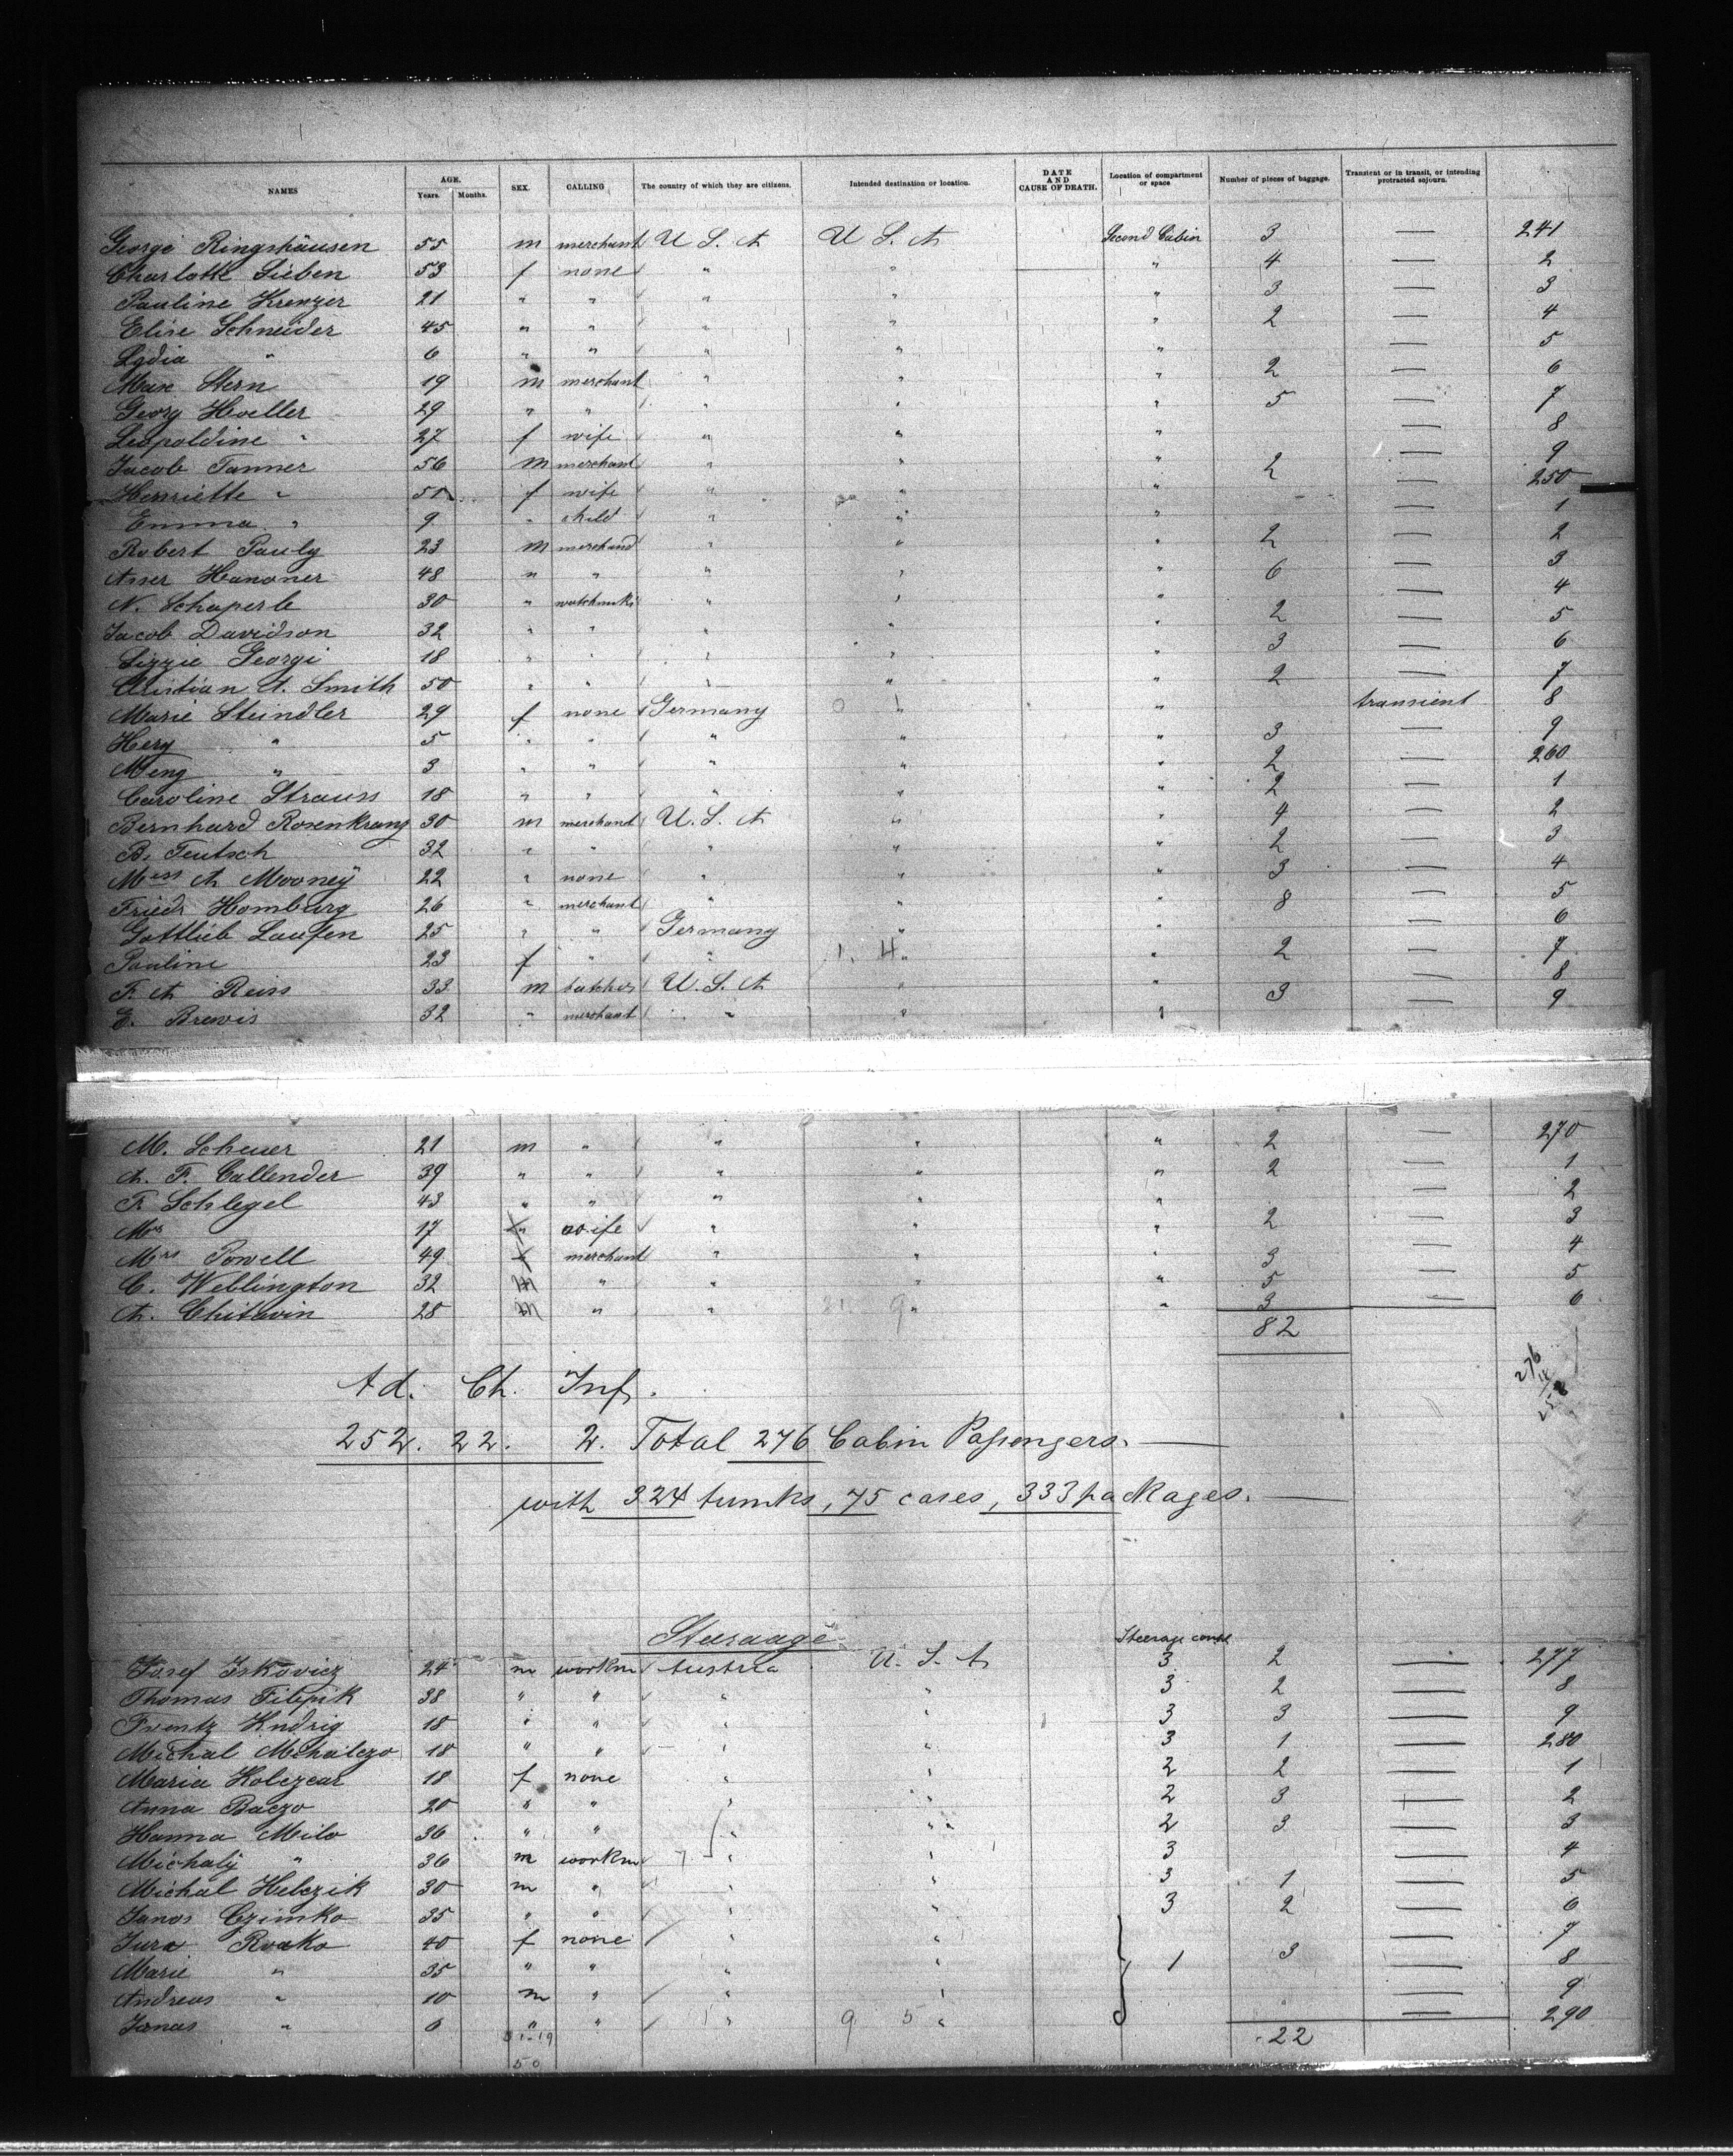 NAMES AGE. Years. Months. SEX. CALLING The country of which they are citizens. Intended destination or location. DATE AND CAUSE OF DEATH. Location of compartment or space Number of pieces of baggage. Transient or in transit, or intending protracted sojourn.
George Ringshäusen 55 m merchant U S. A U S. A Second Cabin 3 — 241
Charlotte Sieben 53 f none " " " 4 — 2
Pauline Krenzer 21 " " " " " 3 — 3
Elise Schneider 45 " " " " " 2 — 4
Lydia " 6 " " " " " 5
Max Stern 19 m merchant " " " 2 — 6
Georg Hoeller 29 " " " " " 5 — 7
Leopoldine " 27 f wife " " " — 8
Jacob Tanner 56 m merchant " " " 2 — 9
Henriette " 51 f wife " " " — 250
Emma " 9 " child " " " — 1
Robert Pauly 23 m merchand " " " 2 — 2
Asser Hanoner 48 " " " " " 6 — 3
N. Schaperle 30 " watchmak " " " 2 — 4
Jacob Davidson 32 " " " " " 3 — 5
Lizzie Georgi 18 " " " " " — 6
Christian A. Smith 50 " " " " " 2 — 7
Marie Steindler 29 f none Germany " " transient 8
Hery " 5 " " " " " 3 — 9
Meng " 3 " " " " " 2 — 260
Caroline Strauss 18 " " " " " 2 — 1
Bernhard Rosenkranz 30 m merchant U. S. A " " 4 — 2
B. Teutsch 32 " " " " " 2 — 3
Miss A Mooney 22 " none " " " 3 — 4
Friedr Homburg 26 " merchant " " " 8 — 5
Gottlieb Laufen 25 " " Germany " " — 6
Pauline 23 f " " " " 2 — 7
F. A Reiss 33 m butcher U. S. A " " — 8
E. Brewis 32 " merchant " " " 3 — 9
M. Scheuer 21 m " " " " 2 — 270
A. F. Callender 39 " " " " " 2 — 1
F. Schlegel 43 " " " " " — 2
Mrs 17 wife " " " 2 — 3
Mrs Powell 49 f merchant " " " 3 — 4
C. Wellington 32 m " " " " 5 — 5
A. Chitwin 28 m " " " " 3 — 6
82
Ad. Ch. Inf.
252. 22. 2. Total 276 Cabin Passengers. —
with 324 trunks, 75 cases, 333 packages. —
Steraage
Steerage
Josef Iskovicz 24 m workm Austria U. S. A 3 2 — 277
Thomas Filipik 38 " " " " 3 2 — 8
Frentz Kndrig 18 " " " " 3 3 — 9
Michal Mchalczo 18 " " " " 3 1 — 280
Maria Kolczear 18 f none " " 2 2 — 1
Anna Baczo 20 " " " " 2 3 — 2
Hanna Milo 36 " " " " 2 3 — 3
Michaly " 36 m workm " " 3 — 4
Michal Helczik 30 m " " " 3 1 — 5
Janos Czimko 35 " " " " 3 2 — 6
Jura Roako 40 f none " " — 7
Marie " 35 " " " " 1 3 — 8
Andreas " 10 m " " " — 9
Janas " 6 " " " " — 290
22